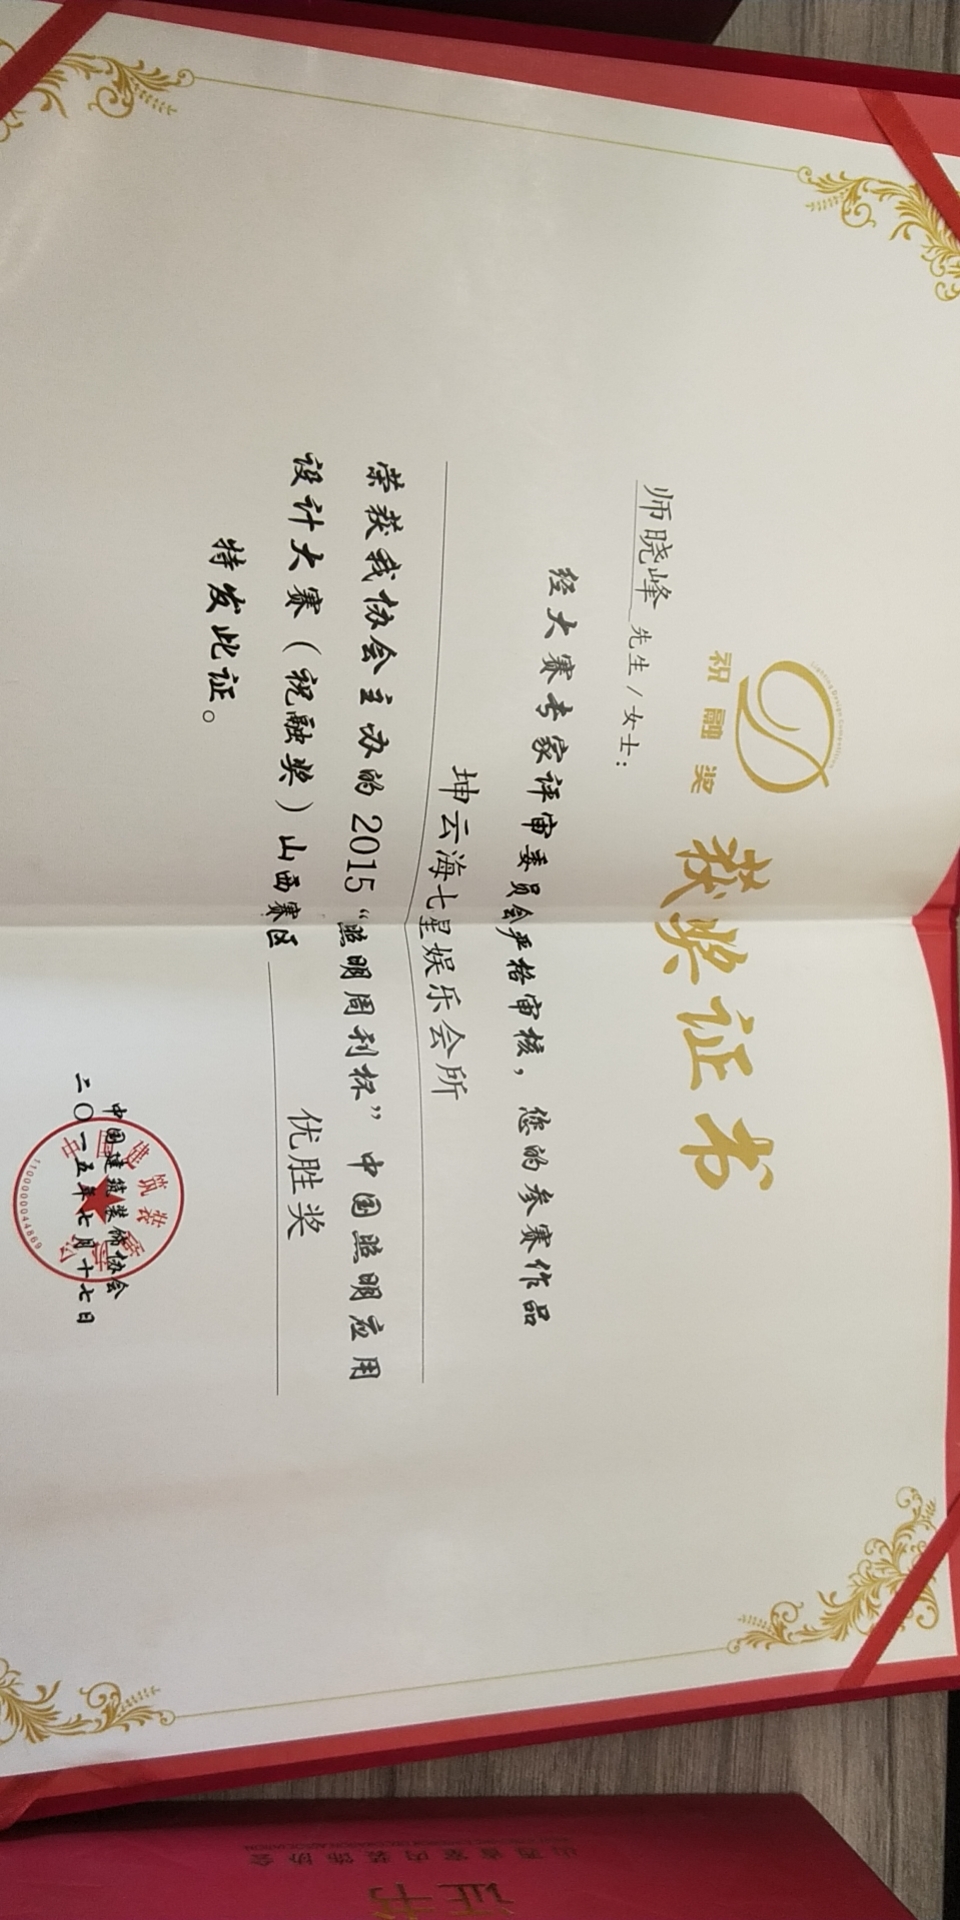 Lighting Design Competitions
祝融奖
获奖证书
师晓峰 先生/女士：
经大赛专家评审委员会严格审核，您的参赛作品
坤云海七星娱乐会所
荣获我协会主办的2015“照明周刊杯”中国照明应用
设计大赛（祝融奖）山西赛区 优胜奖
特发此证。
中国建筑装饰协会
二〇一五年七月十七日
1100000044869
证书